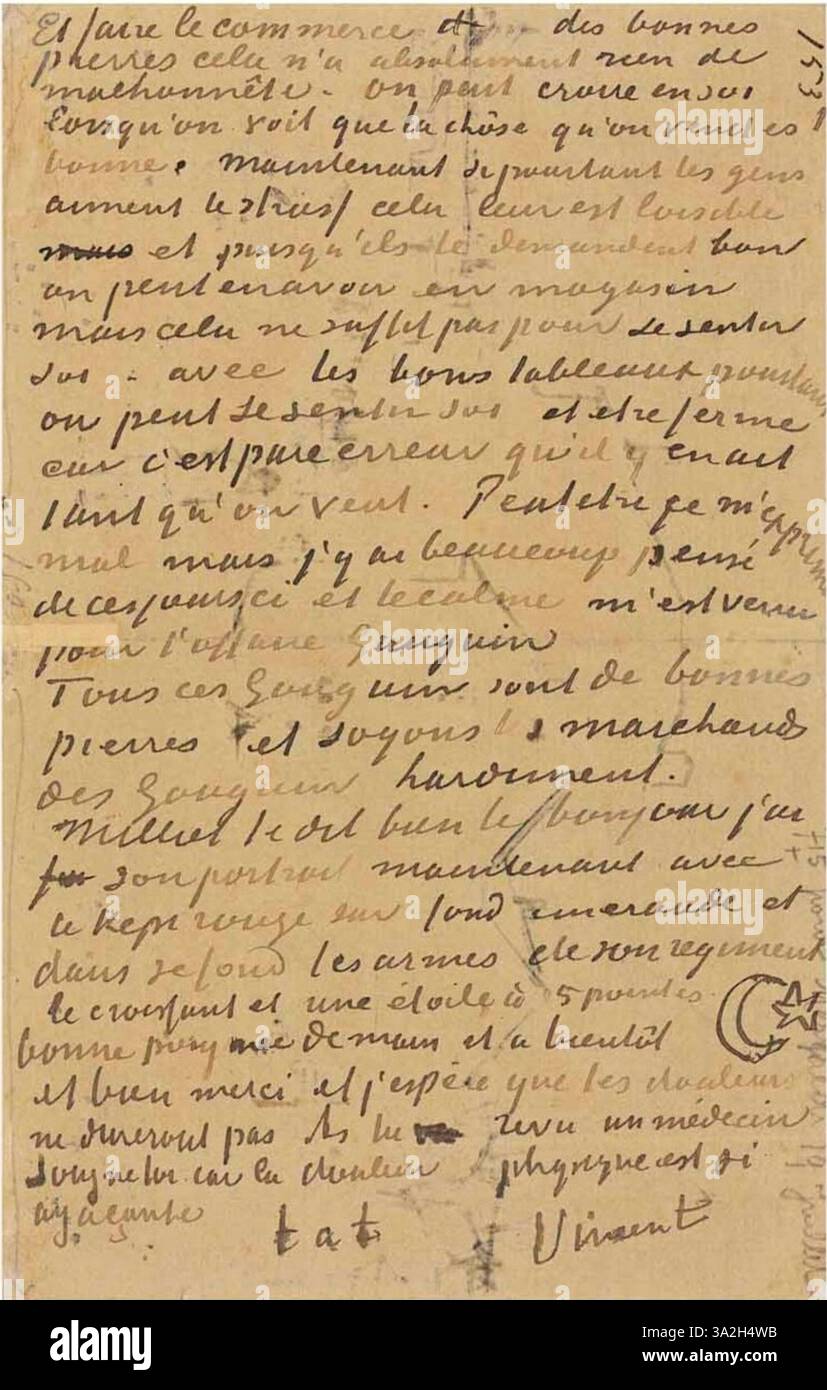 Et faire le commerce des bonnes
pierres cela n'a absolument rien de
malhonnête. On peut croire en soi
lorsqu'on voit que la chôse qu'on vend est
bonne. maintenant si pourtant les gens
aiment le strass cela leur est loisible
mais et puisqu'ils le demandent bon
on peut en avoir en magasin
mais cela ne suffit pas pour se sentir
soi - avec les bons tableaux pourtant
on peut se sentir soi et etre ferme
car c'est pure erreur qu'il y en ait
tant qu'on veut. Peutetre je m'exprime
mal mais j'y ai beaucoup pensé
de ces jours ci et le calme m'est venu
pour l'affaire Gauguin
Tous ces Gauguin sont de bonnes
pierres et soyons les marchands
des Gauguin hardiment.
Milliet te dit bien le bonjour j'ai
son portrait maintenant avec
le kepi rouge sur fond emeraude et
dans ce fond les armes de son regiment
le croissant et une étoile à 5 pointes.
bonne poignée de main et a bientôt
et bien merci et j'espère que tes douleurs
ne dureront pas As tu revu un médecin
soigne toi car la douleur physique est si
agaçante
t a t Vincent
153
alamy
Image ID: 3A2H4WB
www.alamy.com